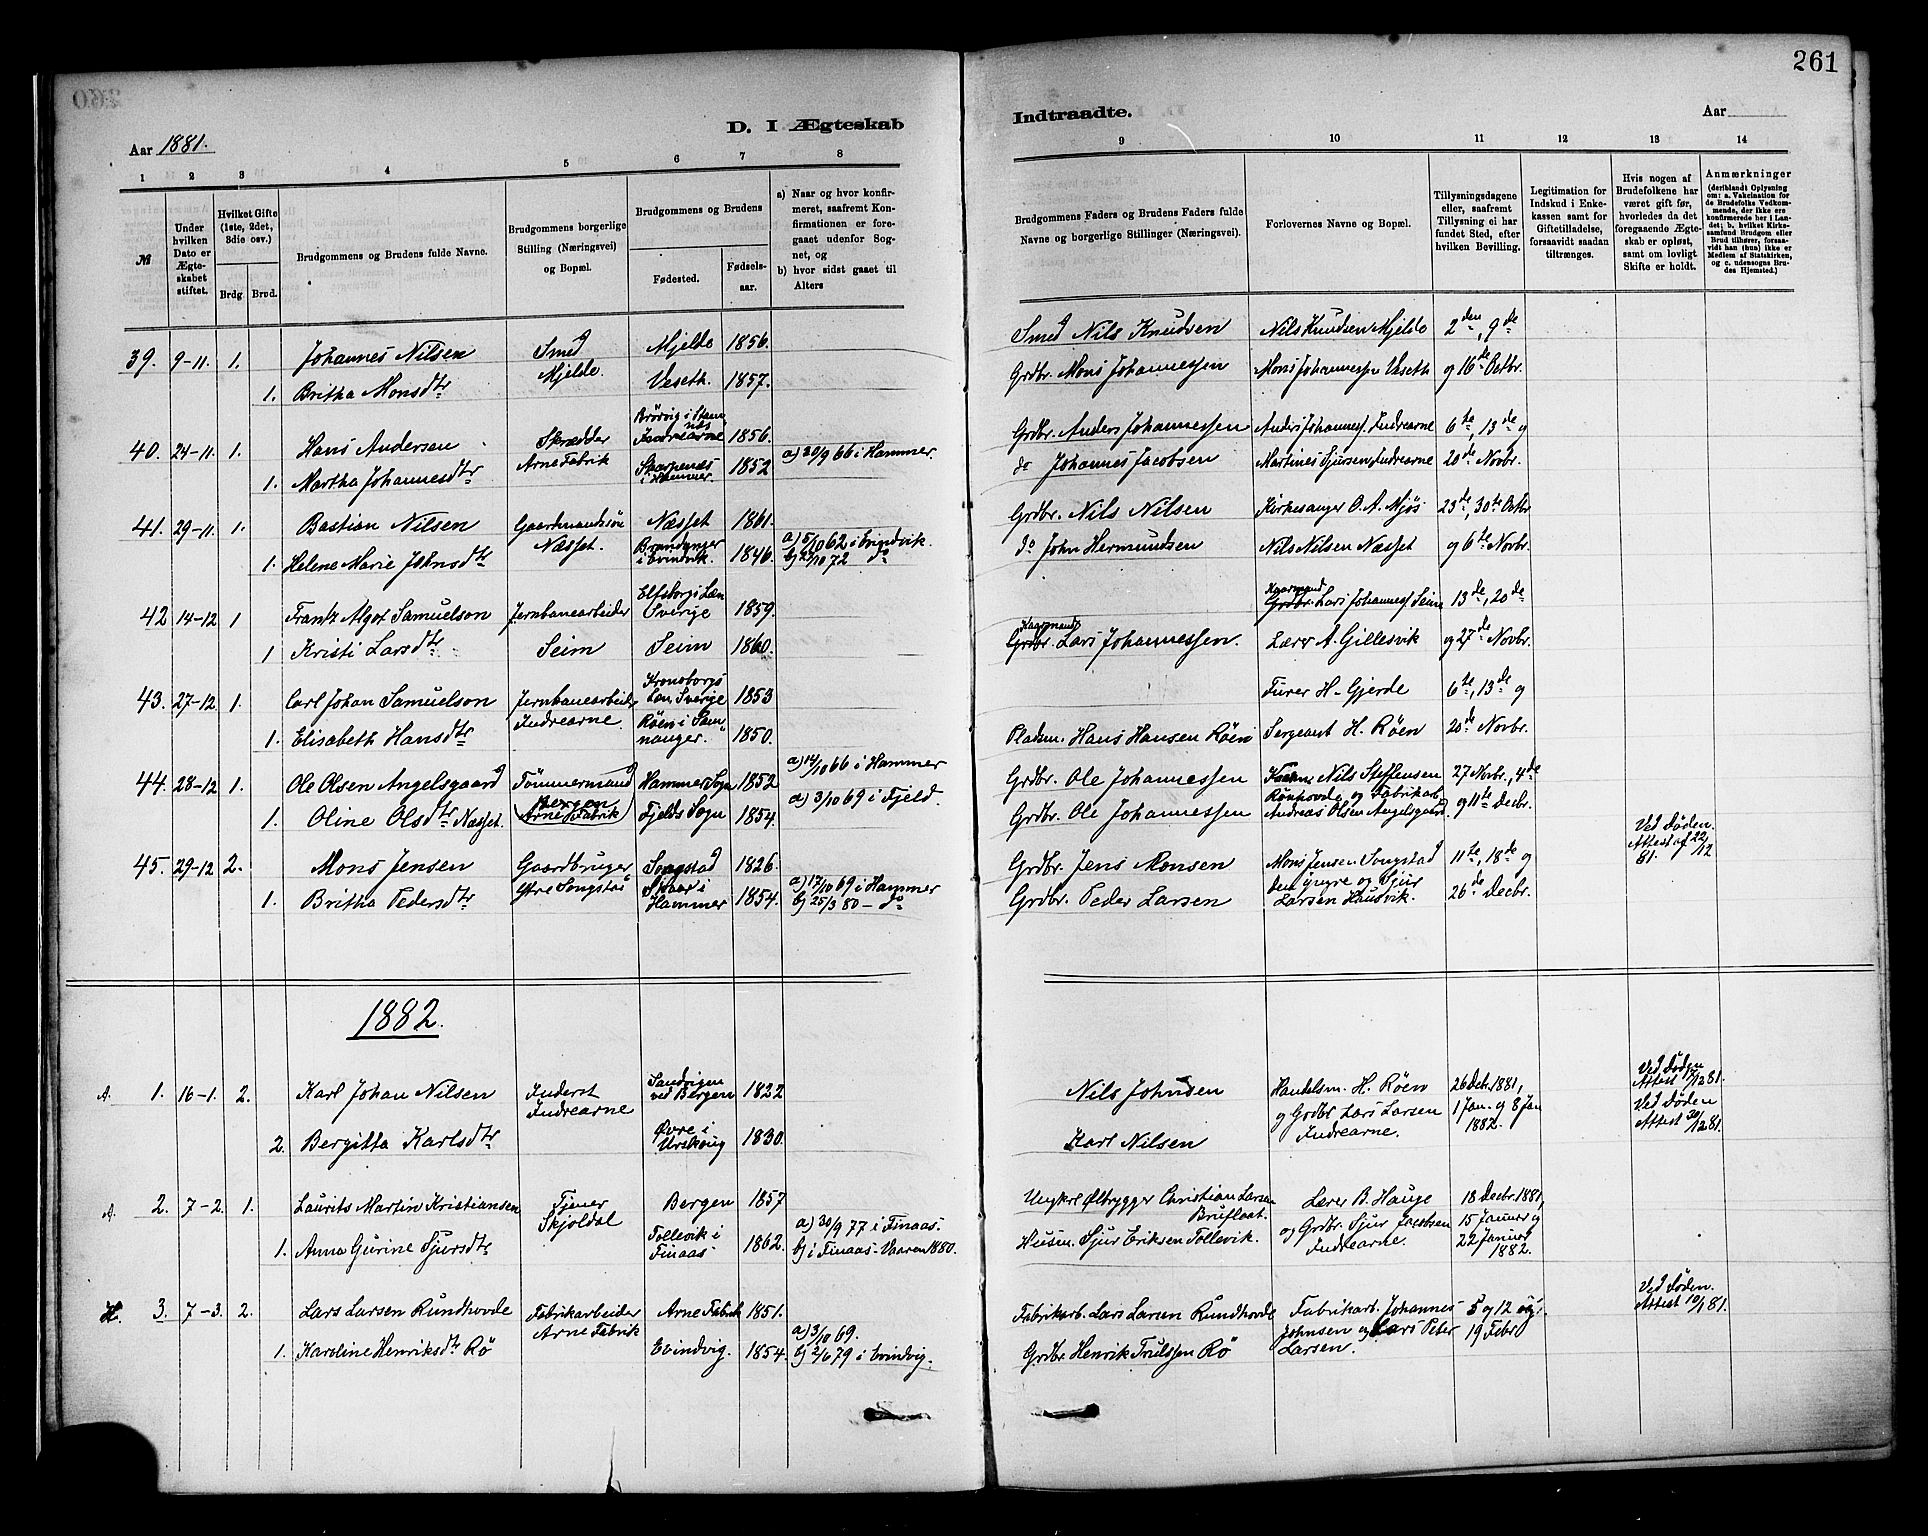 261
D. I Ægteskab Indtraadte.
Aar 1881. Aar
1 2 3 4 5 6 7 8 9 10 11 12 13 14
№
Under hvilken Dato er Ægteskabet stiftet.
Hvilket Gifte (1ste, 2det, 3die osv.)
Brdg. Brud.
Brudgommens og Brudens fulde Navne.
Brudgommens borgerlige Stilling (Næringsvei) og Bopæl.
Brudgommens og Brudens
Fødested. Fødselsaar.
a) Naar og hvor konfirmeret, saafremt Konfirmationen er foregaaet udenfor Sognet, og
b) hvor sidst gaaet til Alters
Brudgommens Faders og Brudens Faders fulde Navne og borgerlige Stillinger (Næringsvei).
Forlovernes Navne og Bopæl.
Tillysningsdagene eller, saafremt Tillysning ei har fundet Sted, efter hvilken Bevilling.
Legitimation for Indskud i Enkekassen samt for Giftetilladelse, forsaavidt saadan tiltrænges.
Hvis nogen af Brudefolkene har været gift før, hvorledes da det foregaaende Ægteskab er opløst, samt om lovligt Skifte er holdt.
Anmærkninger (deriblandt Oplysning om: a. Vakcination for de Brudefolks Vedkommende, der ikke ere konfirmerede her i Landet; b. hvilket Kirkesamfund Brudgom eller Brud tilhører, forsaavidt han (hun) ikke er Medlem af Statskirken, og c. udensogns Brudes Hjemsted.)
39. 9-11. 1. Johannes Nilsen Smed Mjelde 1856. Smed Nils Knudsen Nils Knudsen Mjelde 2den, 9de
1. Britha Monsdtr Mjelde. Veseth. 1857. Grdbr. Mons Johannessen Mons Johannessen Veseth og 16de Octbr.
40. 24-11. 1. Hans Andersen Skrædder Brørvig i Stamnæs Indrearne 1856. Grdbr. Anders Johannessen Anders Johanness. Indrearne 6te, 13de og
1. Martha Johannesdtr Arne Fabrik i Hammer. 1852 a) 30/9 66 i Hammer. do Johannes Jacobsen Martines Sjursen, Indrearne 20de Novbr.
41. 29-11. 1. Bastian Nilsen Gaardmandssön Næsset 1861. Grdbr. Nils Nilsen Kirkesanger O. A. Mjös 23de, 30te Octbr
1. Helene Marie Johnsdtr Næsset. Brandanger i Evindvik. 1846. a) 5/10 62 i Evindvik. b) 27/10 72 do do John Hermundsen Nils Nilsen Næsset og 6te Novbr.
42 14-12 1 Frantz Algot Samuelson Jernbanearbeider Elfsborgs Læn Sverige 1859. Kaarmand Grdbr. Lars Johanness Seim 13de, 20de
1 Kristi Larsdtr Seim Seim 1860. Kaarmand Grdbr. Lars Johannessen. Lærer A. Gillesvik og 27de Novbr.
43. 27-12 1. Carl Johan Samuelson Jernbanearbeider Kronoborgs Læn, Sverige 1853 Furer H. Gjerde 6te, 13de og
1. Elisabeth Hansdtr Indrearne Röen i Samnanger. 1850. Pladsm. Hans Hansen Röen Sergeant H. Röen 20de Novbr.
44. 28-12 1. Ole Olsen Angelsgaard Tømmermand Hammer Sogn 1852 a) 14/10 66 i Hammer Grdbr. Ole Johannessen Nils Steffensen 27 Novbr., 4de
1. Oline Olsdtr Næsset. Bergen (Arne Fabrik) Fjelds Sogn 1854. a) 3/10 69 i Fjeld. Grdbr. Ole Johannessen Rönhovde og Fabrikarb. Andreas Olsen Angelsgaard. og 11te Decbr.
45. 29-12 2. Mons Jensen Gaardbruger Songstad 1826. Grdbr. Jens Monsen Mons Jensen Songstad 11te, 18de og Ved Døden. Attest af 22/12 81.
1. Britha Pedersdtr Ytre Songstad Skaar i Hammer 1854. a) 17/10 69 i Hammer b) 25/3 80 - do Grdbr. Peder Larsen den yngre og Sjur Larsen Hausvik. 26de Decbr.
1882.
A. 1. 16-1. 2. Karl Johan Nilsen Inderst Sandvigen ved Bergen 1822 Nils Johnsen Handelsm. H. Röen 26 Dcb. 1881, Ved Døden Attest 12 81.
2. Bergitta Karlsdtr Indrearne Øvre i Urskoug 1830. Karl Nilsen og Grdbr Lars Larsen Indrearne. 1 Jan. og 8 Jan 1882. Ved Døden Attest 30/12 81.
A. 2. 7-2. 1. Laurits Martin Kristiansen Tjener Bergen 1857 Ungkrl Ølbrygger Christian Larsen Bruflaat. Lærer B. Hauge 18 Decbr. 1881,
1. Anna Gurine Sjursdtr Skjoldal Tollevik i Finaas 1862. a) 30/9 77 i Finaas. b) i Finaas. Vaaren 1880. Husm. Sjur Eriksen Tollevik. og Grdbr. Sjur Jacobsen Indrearne. 15 Januar og 22 Januar 1882.
H. 3. 7-3. 2. Lars Larsen Rundhovde Fabrikarbeider Arne Fabrik 1851. Fabrikarb. Lars Larsen Rundhovde Fabrikarb. Johannes 5 og 12 og Ved Døden. Attest 10/1 81.
1. Karoline Henriksdtr Rö Arne Fabrik Evindvig. 1854. a) 3/10 69. b) 2/6 79 i Evindvig. Grdbr Henrik Trulssen Rö Johnsen og Lars Peter Larsen. 19 Febr.